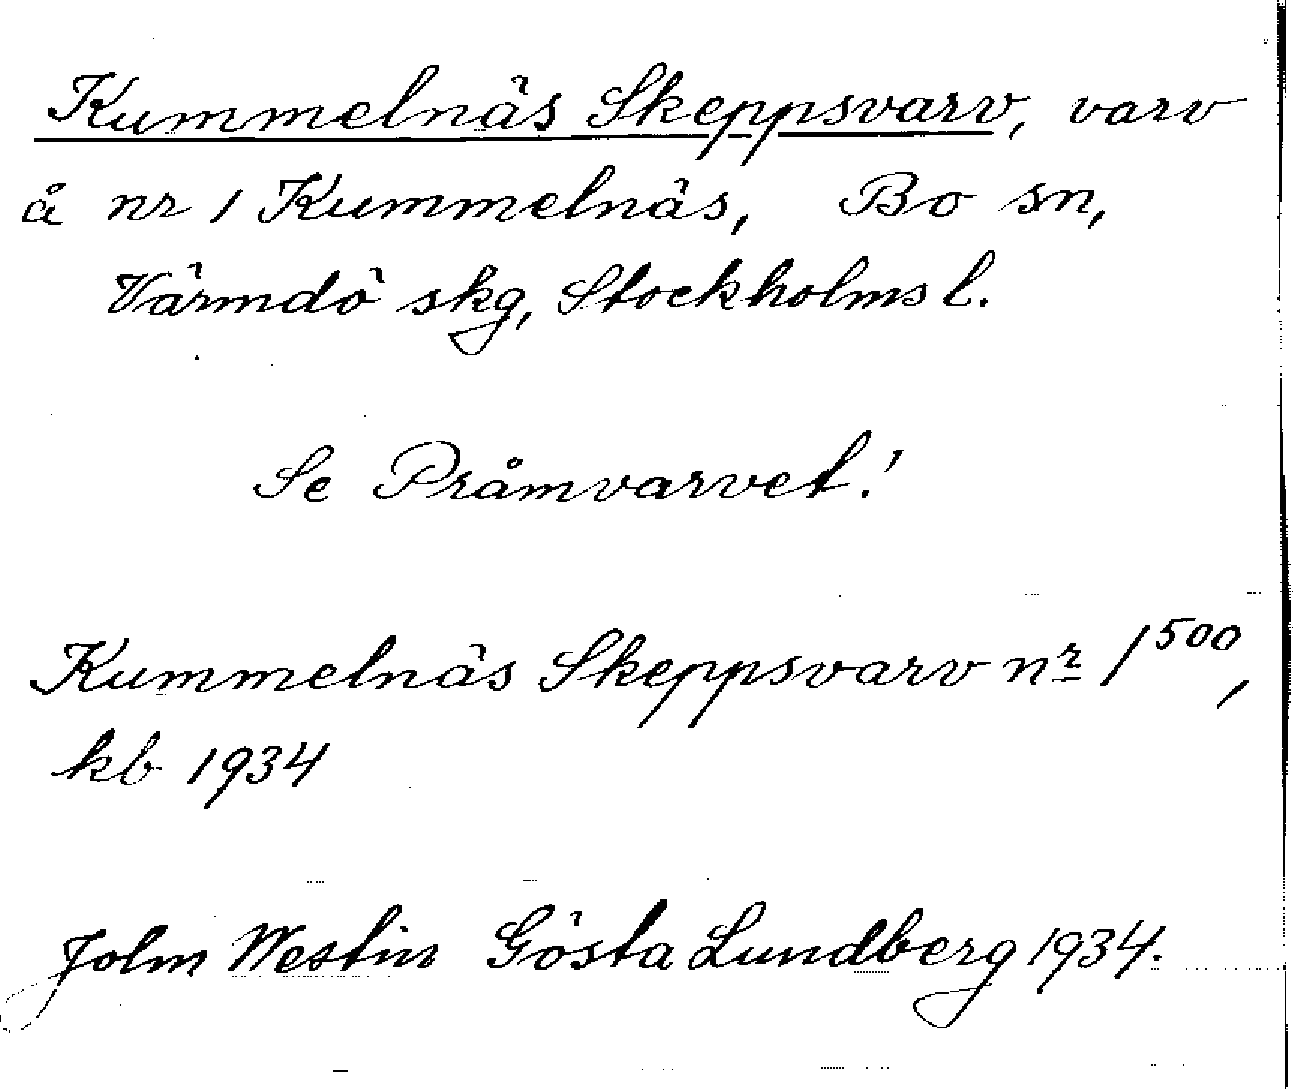 Kummelnäs Skeppsvarv, varv
å nr 1 Kummelnäs, Bo sn,
Värmdö skg, Stockholms l.
Se Pråmvarvet!
Kummelnäs Skeppsvarv nr 1⁵⁰⁰,
kb 1934
John Westin Gösta Lundberg 1934.